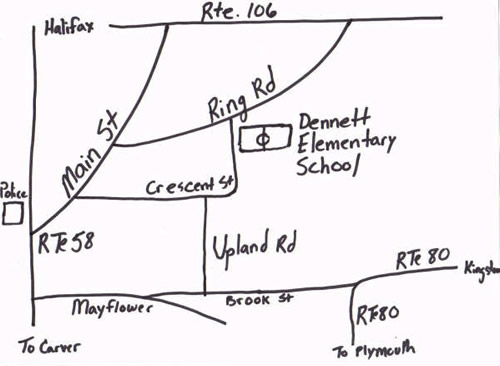 Rte. 106
Halifax
Ring Rd
Main St
Dennett
Elementary
School
Crescent St
Police
RTe 58
Upland Rd
RTe 80
Mayflower
Brook St
RTe80
To Carver
To Plymouth